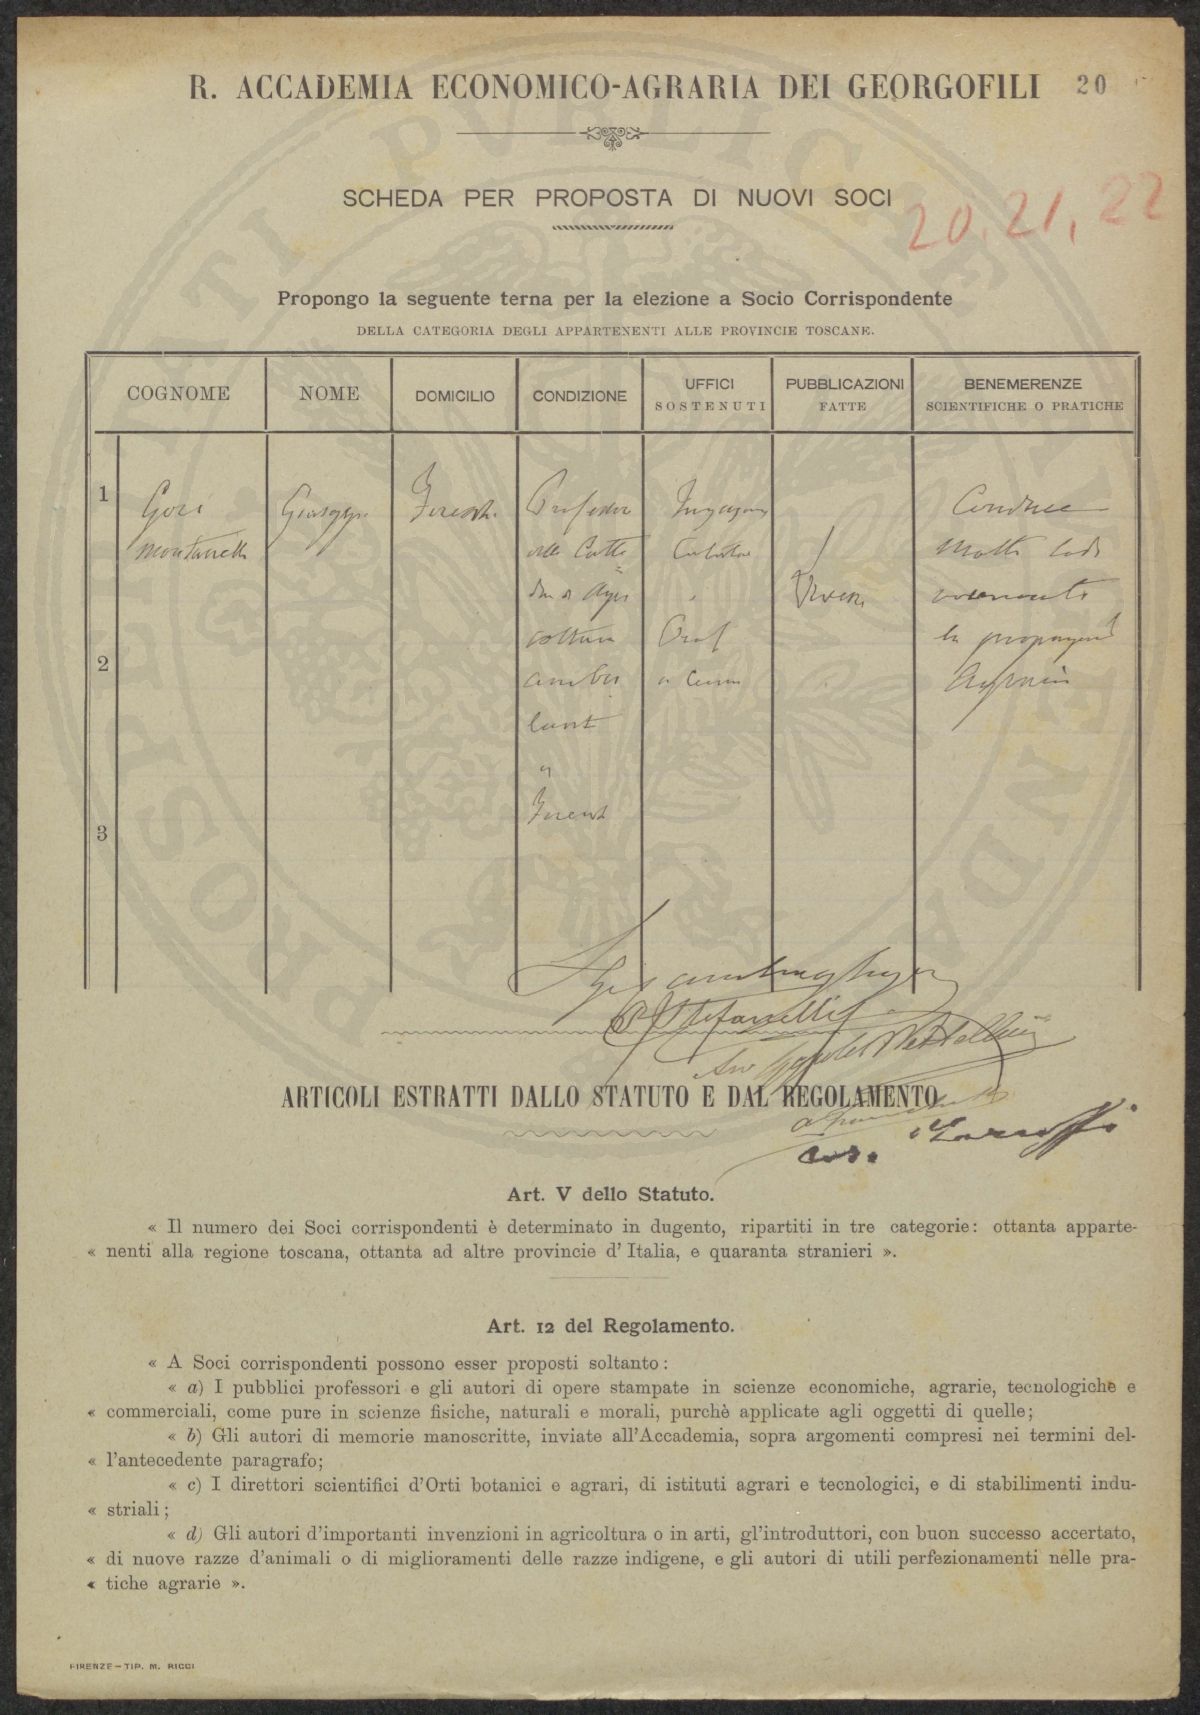 R. ACCADEMIA ECONOMICO-AGRARIA DEI GEORGOFILI 20
SCHEDA PER PROPOSTA DI NUOVI SOCI
20. 21, 22
Propongo la seguente terna per la elezione a Socio Corrispondente
DELLA CATEGORIA DEGLI APPARTENENTI ALLE PROVINCIE TOSCANE.
COGNOME NOME DOMICILIO CONDIZIONE UFFICI SOSTENUTI PUBBLICAZIONI FATTE BENEMERENZE SCIENTIFICHE O PRATICHE
1 Gori Giuseppe Firenze Professore Conduce
Montanelli della Catte molto lode
dra di Agri Diverse volmente
2 coltura Prof la propaganda
ambu Agraria
lante
a
Firenze
3
Stefanelli
ARTICOLI ESTRATTI DALLO STATUTO E DAL REGOLAMENTO
Art. V dello Statuto.
« Il numero dei Soci corrispondenti è determinato in dugento, ripartiti in tre categorie: ottanta apparte-
« nenti alla regione toscana, ottanta ad altre provincie d'Italia, e quaranta stranieri ».
Art. 12 del Regolamento.
« A Soci corrispondenti possono esser proposti soltanto:
« a) I pubblici professori e gli autori di opere stampate in scienze economiche, agrarie, tecnologiche e
« commerciali, come pure in scienze fisiche, naturali e morali, purchè applicate agli oggetti di quelle;
« b) Gli autori di memorie manoscritte, inviate all'Accademia, sopra argomenti compresi nei termini del-
« l'antecedente paragrafo;
« c) I direttori scientifici d'Orti botanici e agrari, di istituti agrari e tecnologici, e di stabilimenti indu-
« striali;
« d) Gli autori d'importanti invenzioni in agricoltura o in arti, gl'introduttori, con buon successo accertato,
« di nuove razze d'animali o di miglioramenti delle razze indigene, e gli autori di utili perfezionamenti nelle pra-
« tiche agrarie ».
FIRENZE - TIP. M. RICCI
PROSPERITATI PUBLICAE AUGENDAE